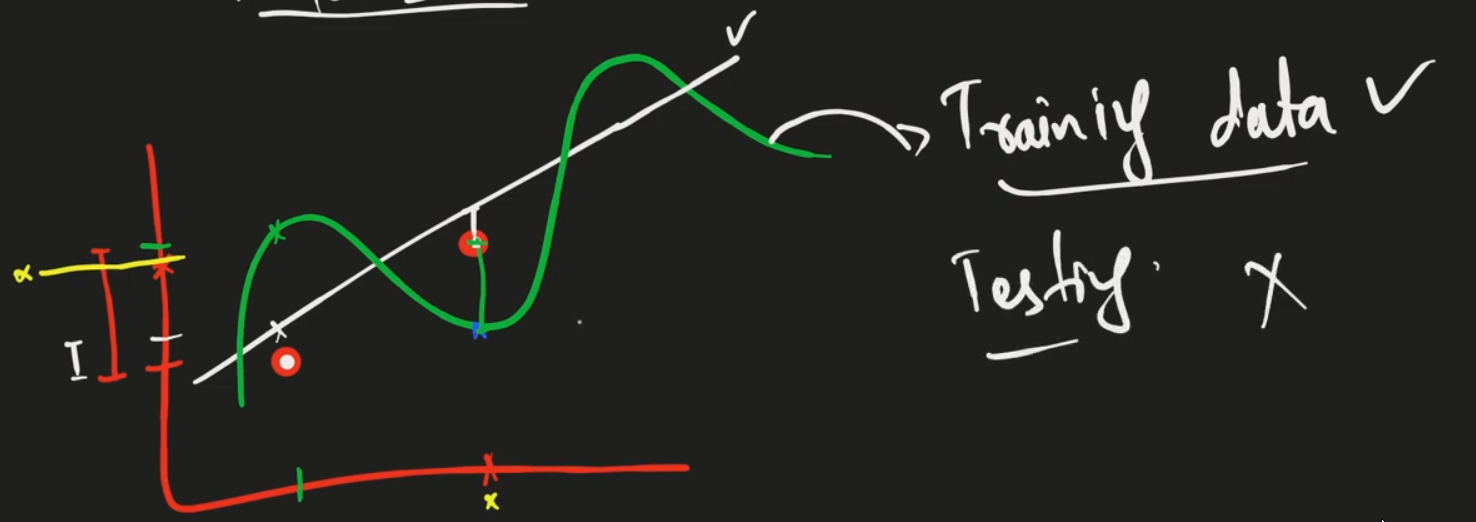 Trainiy data ✓
Testiy. X
I
x